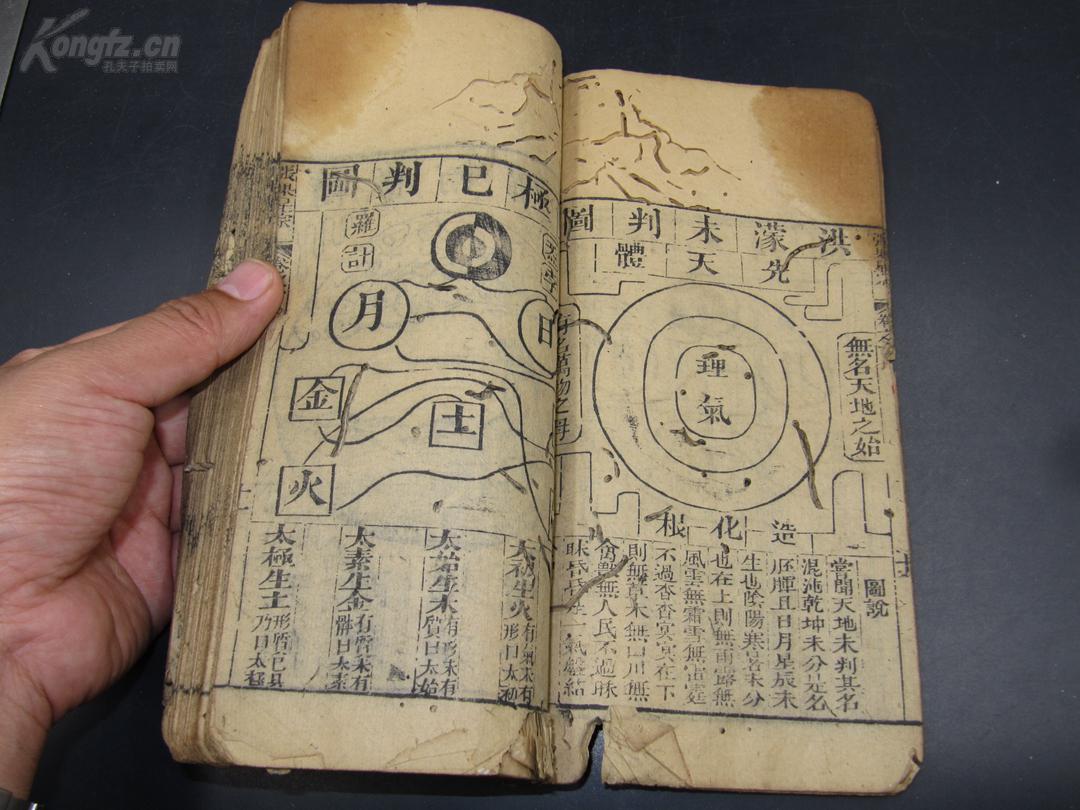 Kongfz.cn
孔夫子拍卖网
洪濛未判圖
先天體
無名天地之始
理氣
名萬物之母
造化根
圖說
嘗聞天地未判其名
混沌乾坤未分是名
胚腪且日月星辰未
生也陰陽寒暑未分
也在上則無雨露無
風雲無霜雪無雷霆
不過杳杳冥冥在下
則無草木無山川無
禽獸無人民不過昧
昧昏昏一氣盤結
極已判圖
羅計
日
月
土
金
火
太初生火有氣未有形曰太初
太始生木有形未有質曰太始
太素生金有質未有體曰太素
太極生土形質已具乃曰太極
張果星宗